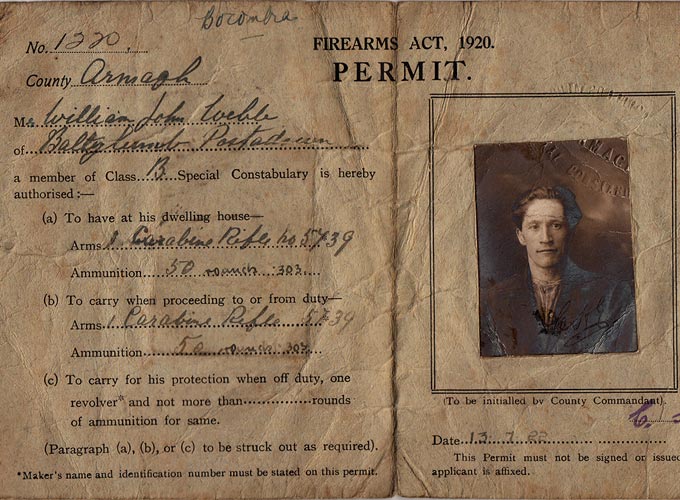 Bocombra
No. 1220
County Armagh
FIREARMS ACT, 1920.
PERMIT.
Mr William John Webb
of Portadown
a member of Class B Special Constabulary is hereby
authorised :—
(a) To have at his dwelling house—
Arms 1 Carabine Rifle no 5739
Ammunition 50 rounds .303
(b) To carry when proceeding to or from duty—
Arms 1 Carabine Rifle 5739
Ammunition 50 rounds .303
(c) To carry for his protection when off duty, one
revolver* and not more than rounds
of ammunition for same.
(Paragraph (a), (b), or (c) to be struck out as required).
*Maker's name and identification number must be stated on this permit.
(To be initialled by County Commandant).
Date 13.7.22
This Permit must not be signed or issued
applicant is affixed.